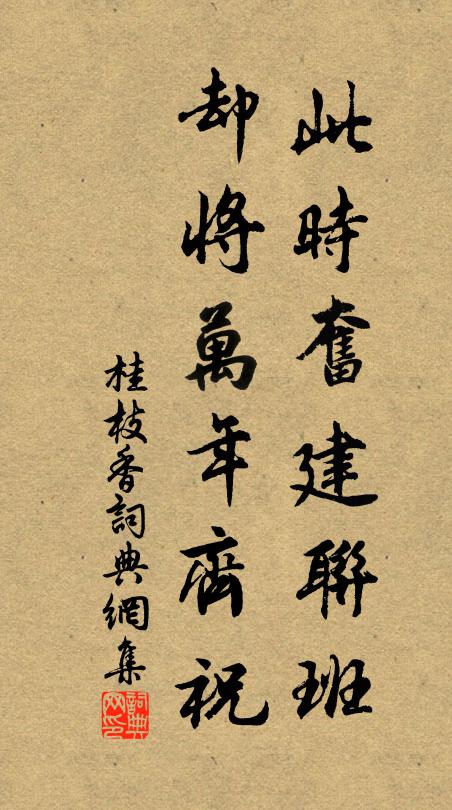 此時奮建聯班
却將萬年齊祝
桂枝香詞典網集
詞典
网印